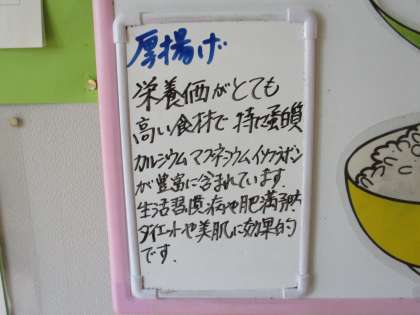 厚揚げ
栄養価がとても
高い食材で 特に蛋白質
カルシウム マグネシウム イソフラボン
が豊富に含まれています.
生活習慣病や肥満予防
ダイエットや美肌に効果的
です.